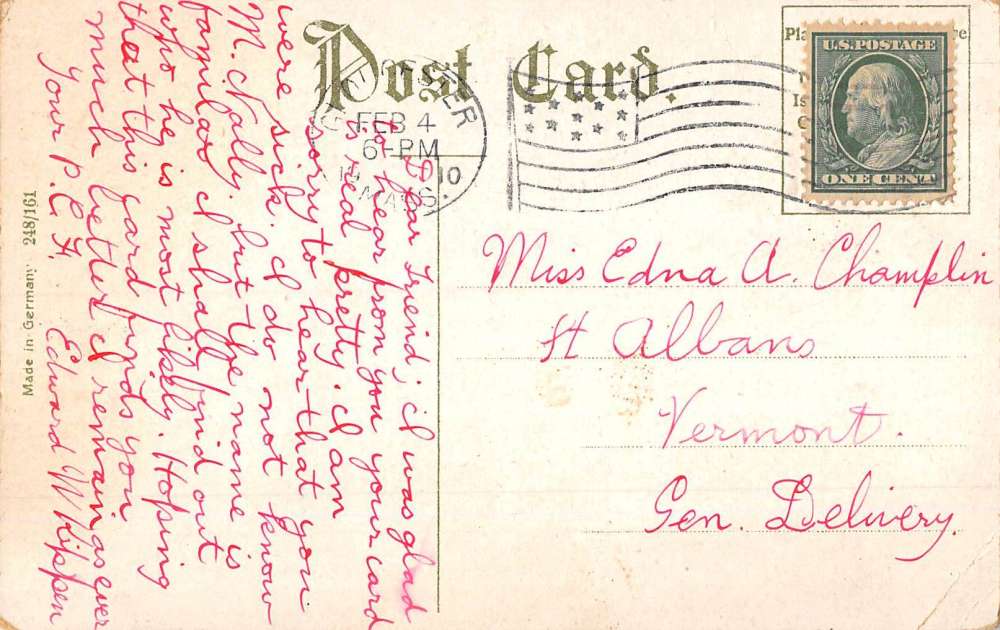 Post Card.
FEB 4
6-PM
MASS.
U.S. POSTAGE
ONE CENT
Dear Friend; I was glad
to hear from you your card
is real pretty. I am
sorry to hear that you
were sick. I do not know
M. C Nally. but the name is
familar I shall find out
who he is most likely. Hopsing
that this card finds you
much better I remain as ever
Your P.C.F. Edward W Kippen
Miss Edna A. Champlin
St Albans
Vermont.
Gen. Delivery.
Made in Germany 248/161